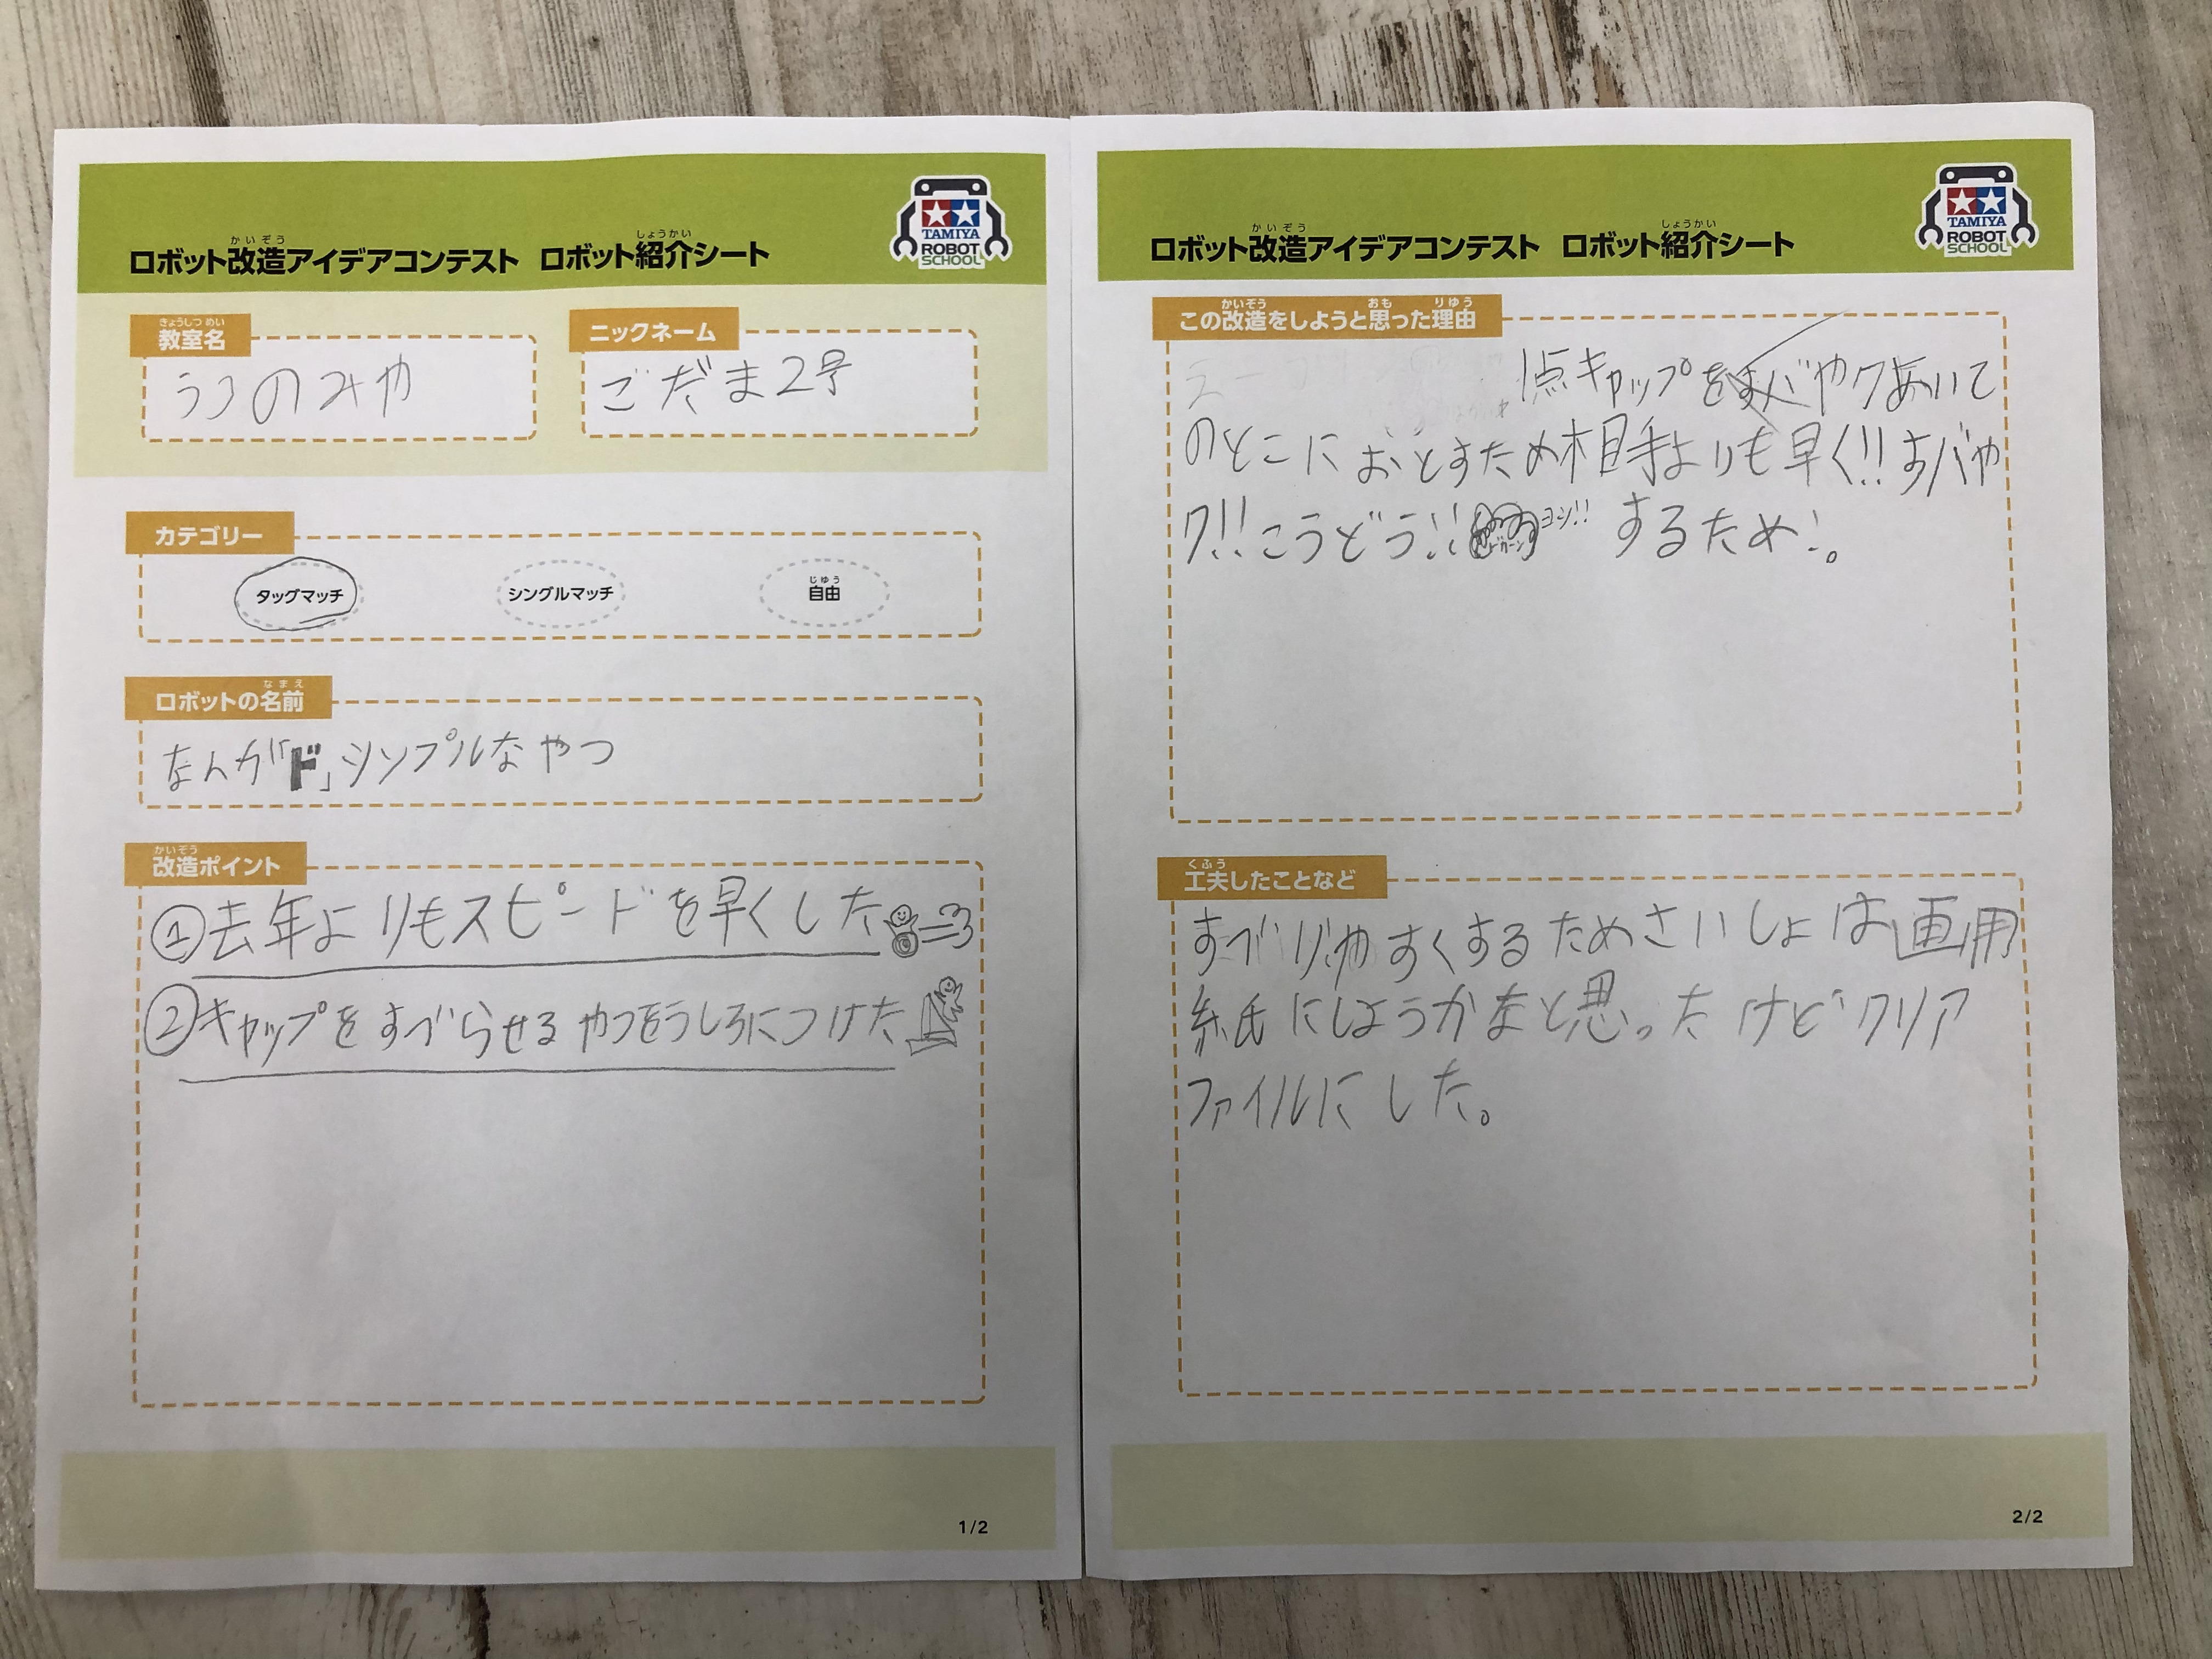 ロボット改造アイデアコンテスト ロボット紹介シート
かいぞう
しょうかい
TAMIYA
ROBOT
SCHOOL
きょうしつ めい
教室名
うつのみや
ニックネーム
ごだま2号
カテゴリー
タッグマッチ
シングルマッチ
じゆう
自由
なまえ
ロボットの名前
なんか「ド」シンプルなやつ
かいぞう
改造ポイント
①去年よりもスピードを早くした
②キャップをすべらせるやつをうしろにつけた
1/2
ロボット改造アイデアコンテスト ロボット紹介シート
かいぞう
しょうかい
TAMIYA
ROBOT
SCHOOL
かいぞう おも りゆう
この改造をしようと思った理由
1点キャップをすバやクあいて
のとこにおとすため相手よりも早く!!すバや
ク!!こうどう!! ドカーン ヨシ!! するため!。
くふう
工夫したことなど
すべりやすくするためさいしょは画用
紙にしようかなと思ったけどクリア
ファイルにした。
2/2